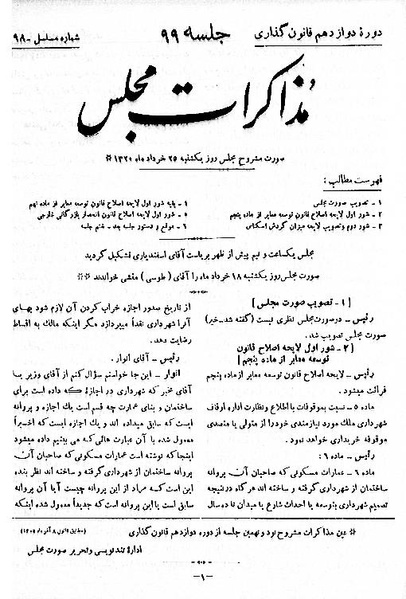 دورهٔ دوازدهم قانون گذاری
جلسه ۹۹
شماره مسلسل ۹۸۰
مذاکرات مجلس
صورت مشروح مجلس روز یکشنبه ۲۵ خرداد ماه ۱۳۲۰ *
فهرست مطالب :
۱ - تصویب صورت مجلس
۲ - شور اول لایحه اصلاح قانون توسعه معابر از ماده پنجم
۳ - شور دوم و تصویب لایحه میزان گردش اسکناس
۴ - بقیه شور اول لایحه اصلاح قانون توسعه معابر از ماده نهم
۵ - شور اول لایحه اصلاح قانون انحصار بازرگانی خارجی
۶ - موقع و دستور جلسه بعد - ختم جلسه
مجلس یکساعت و نیم پیش از ظهر بریاست آقای اسفندیاری تشکیل گردید
صورت مجلس روز یکشنبه ۱۸ خرداد ماه را آقای ( طوسی ) منشی خواندند *
[ ۱ - تصویب صورت مجلس ]
رئیس - در صورت مجلس نظری نیست ( گفته شد - خیر )
صورت مجلس تصویب شد.
[ ۲ - شور اول لایحه اصلاح قانون
توسعه معابر از ماده پنجم ]
رئیس - لایحه اصلاح قانون توسعه معابر از ماده پنجم
قرائت میشود.
ماده ۵ - نسبت بموقوفات با اطلاع و نظارت اداره اوقاف
شهرداری ملک مورد نیازمندی خود را از متولی یا متصدی
موقوفه خریداری خواهد نمود.
رئیس - ماده ۶ :
ماده ۶ - عمارات مسکونی که صاحبان آن پروانه
ساختمان از شهرداری گرفته و ساخته اند هرگاه در نتیجه
تصمیم شهرداری بتوسعه یا احداث شارع یا میدان تا ده سال
از تاریخ صدور اجازه خراب کردن آن لازم شود بهای
آنرا شهرداری نقداً میپردازد مگر اینکه مالک به اقساط
رضایت دهد.
رئیس - آقای انوار.
انوار - این جا خواستم سؤال کنم از آقای وزیر یا
آقای مخبر که شهرداری در اجازهٔ که داده است برای
ساختمان و بنای عمارت چه قسم است یک اجازه و پروانه
است که سابق میداده اند و یک اجازه است که اخیراً
معمول شده با آن عبارت هائی که می بینیم داده میشود
اینجا که نوشته است عمارات مسکونی که صاحبان آن
پروانه ساختمان از شهرداری گرفته و ساخته اند نظر بنده
این است که مراد از این پروانه چیست آیا آن پروانه
سابق است یا این پروانه است که جدیداً معمول شده اینکه
* عین مذاکرات مشروح نود و نهمین جلسه از دوره دوازدهم قانون گذاری
(مطابق قانون ۸ آذر ماه ۱۳۰۵)
ادارهٔ تندنویسی و تحریر صورت مجلس
-۱-